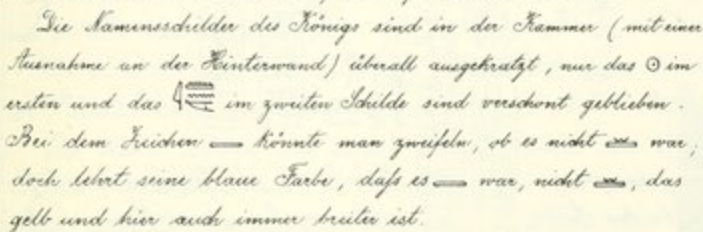 Die Namensschilder des Königs sind in der Kammer (mit einer
Ausnahme an der Hinterwand) überall ausgekratzt, nur das 𓇳 im
ersten und das 𓇋𓏠𓈖 im zweiten Schilde sind verschont geblieben.
Bei dem Zeichen 𓐛 könnte man zweifeln, ob es nicht 𓐛 war;
doch lehrt seine blaue Farbe, daſs es 𓐛 war, nicht, das
gelb und hier auch immer breiter ist.